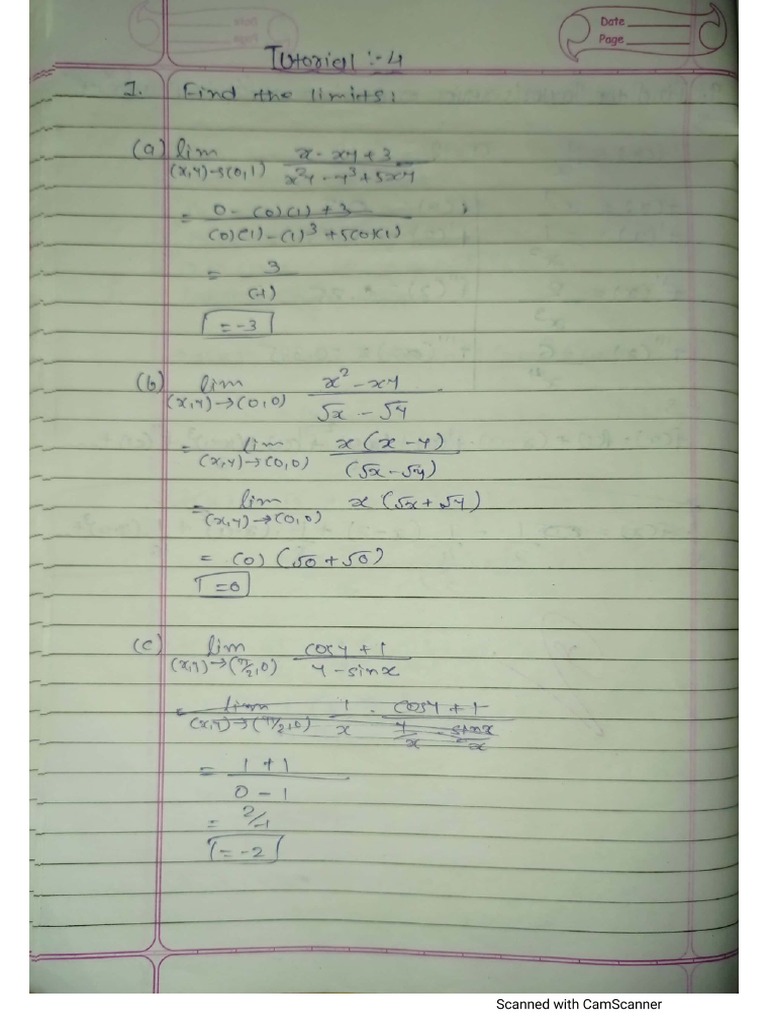 Date
Page
Tutorial :- 4
1. Find the limits:
(a) lim (x,y)→(0,1) x - xy + 3 / x²y - y³ + 5xy
= 0 - (0)(1) + 3 / (0)(1) - (1)³ + 5(0)(1)
= 3 / (-1)
= -3
(b) lim (x,y)→(0,0) x² - xy / √x - √y
= lim (x,y)→(0,0) x(x - y) / (√x - √y)
= lim (x,y)→(0,0) x(√x + √y)
= (0)(√0 + √0)
= 0
(c) lim (x,y)→(π/2,0) cosy + 1 / y - sinx
= lim (x,y)→(π/2,0) 1/x . cosy + 1 / y/x - sinx/x
= 1 + 1 / 0 - 1
= 2/-1
= -2
Scanned with CamScanner